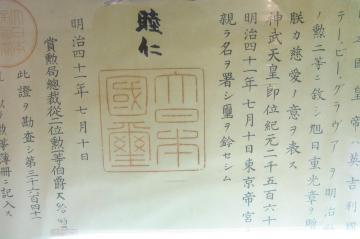 國皇帝ハ英吉利國
テー、ビー、グラヴァヲ明治
ノ勲二等ニ叙シ旭日重光章ヲ贈
朕カ慈愛ノ意ヲ表ス
神武天皇即位紀元二千五百六十
明治四十一年七月十日東京帝宮
親ラ名ヲ署シ璽ヲ鈐セシム
睦仁
大日本
國璽
明治四十一年七月十日
賞勲局總裁從一位勲一等伯爵大給
此證ヲ勘査シ第三千六百四十
勲等簿冊ニ記入ス